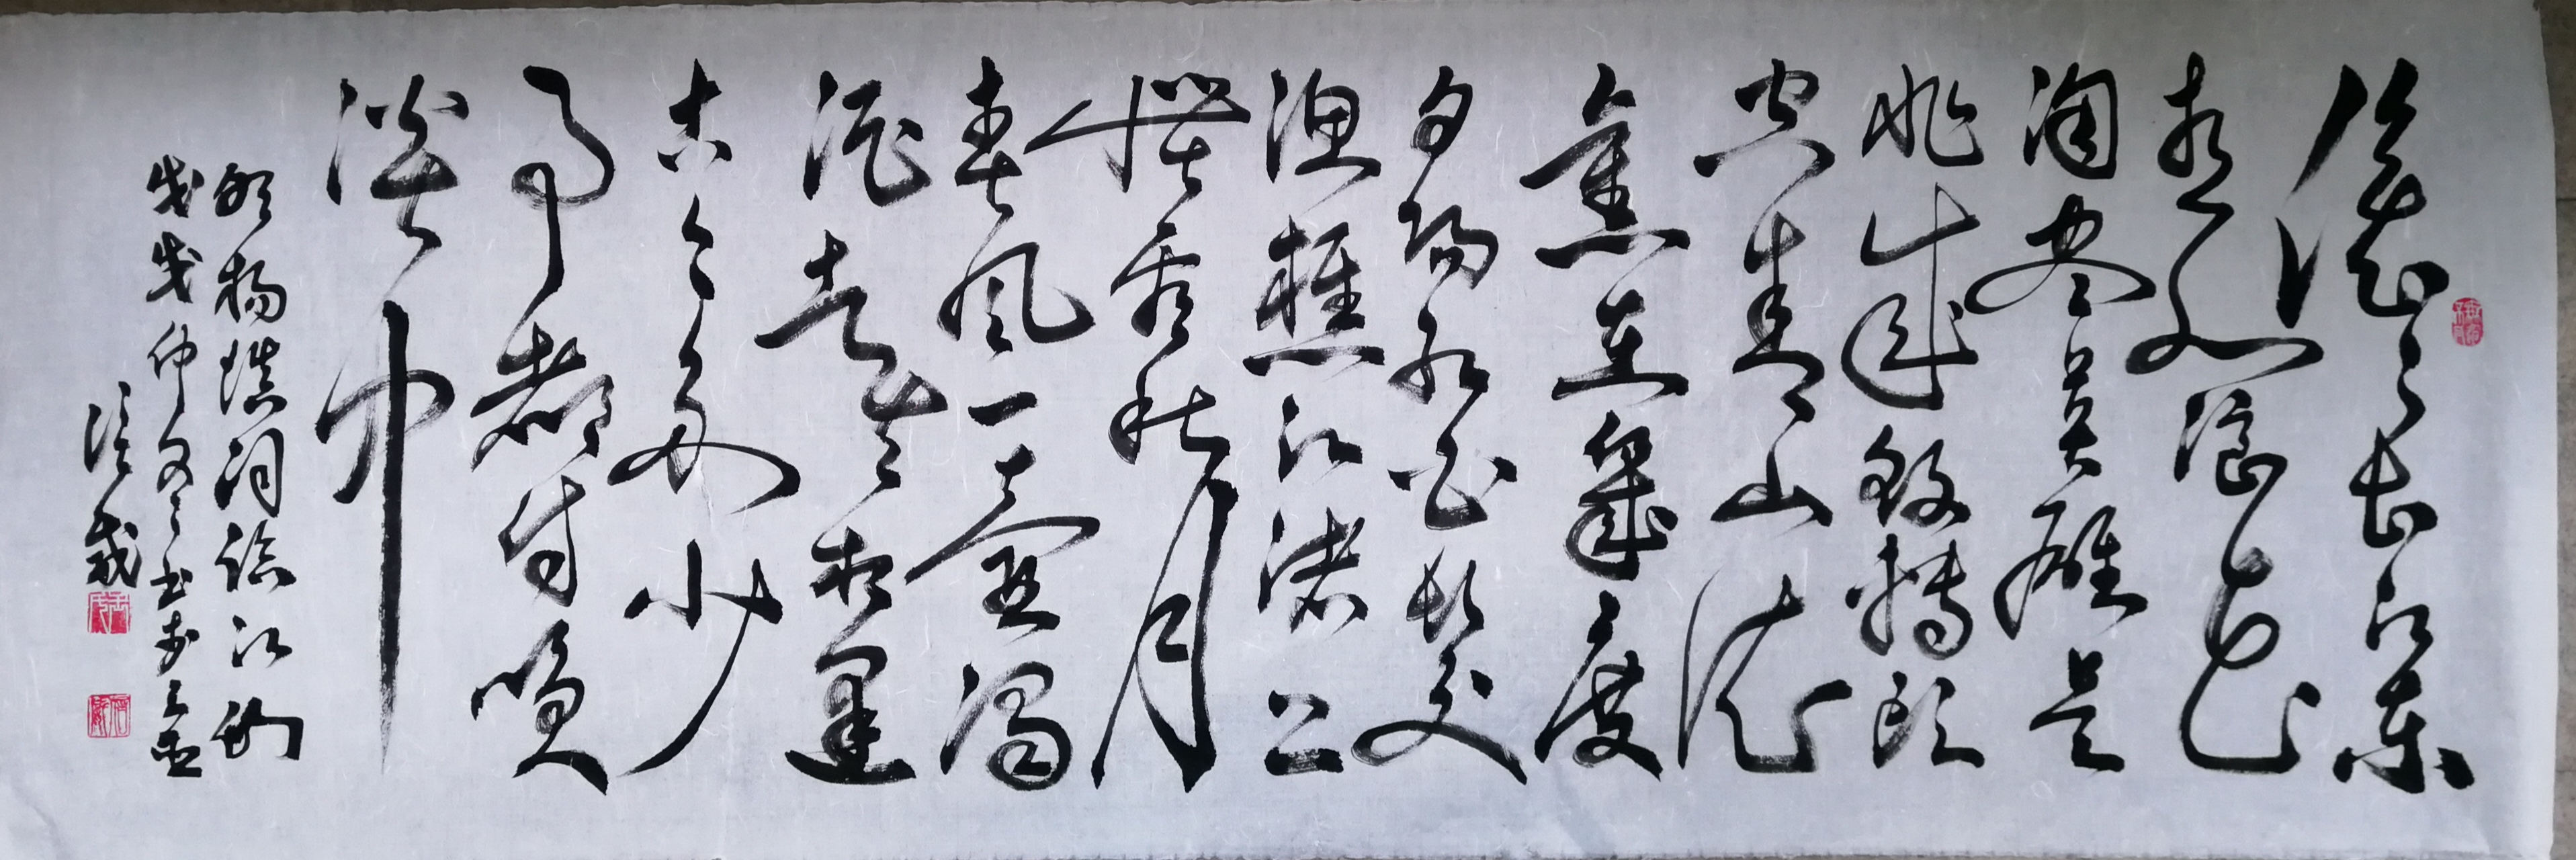 滚滚长江东
逝水浪花
淘尽英雄是
非成败转头
空青山依
舊在幾度
夕陽红白髮
渔樵江渚上
惯看秋月
春风一壶濁
酒喜相逢
古今多少
事都付笑
谈中
明杨慎词临江仙
戊戌仲冬